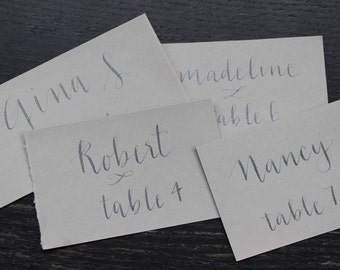 Gina S.
madeline
table 6
Robert
table 4
Nancy
table 7